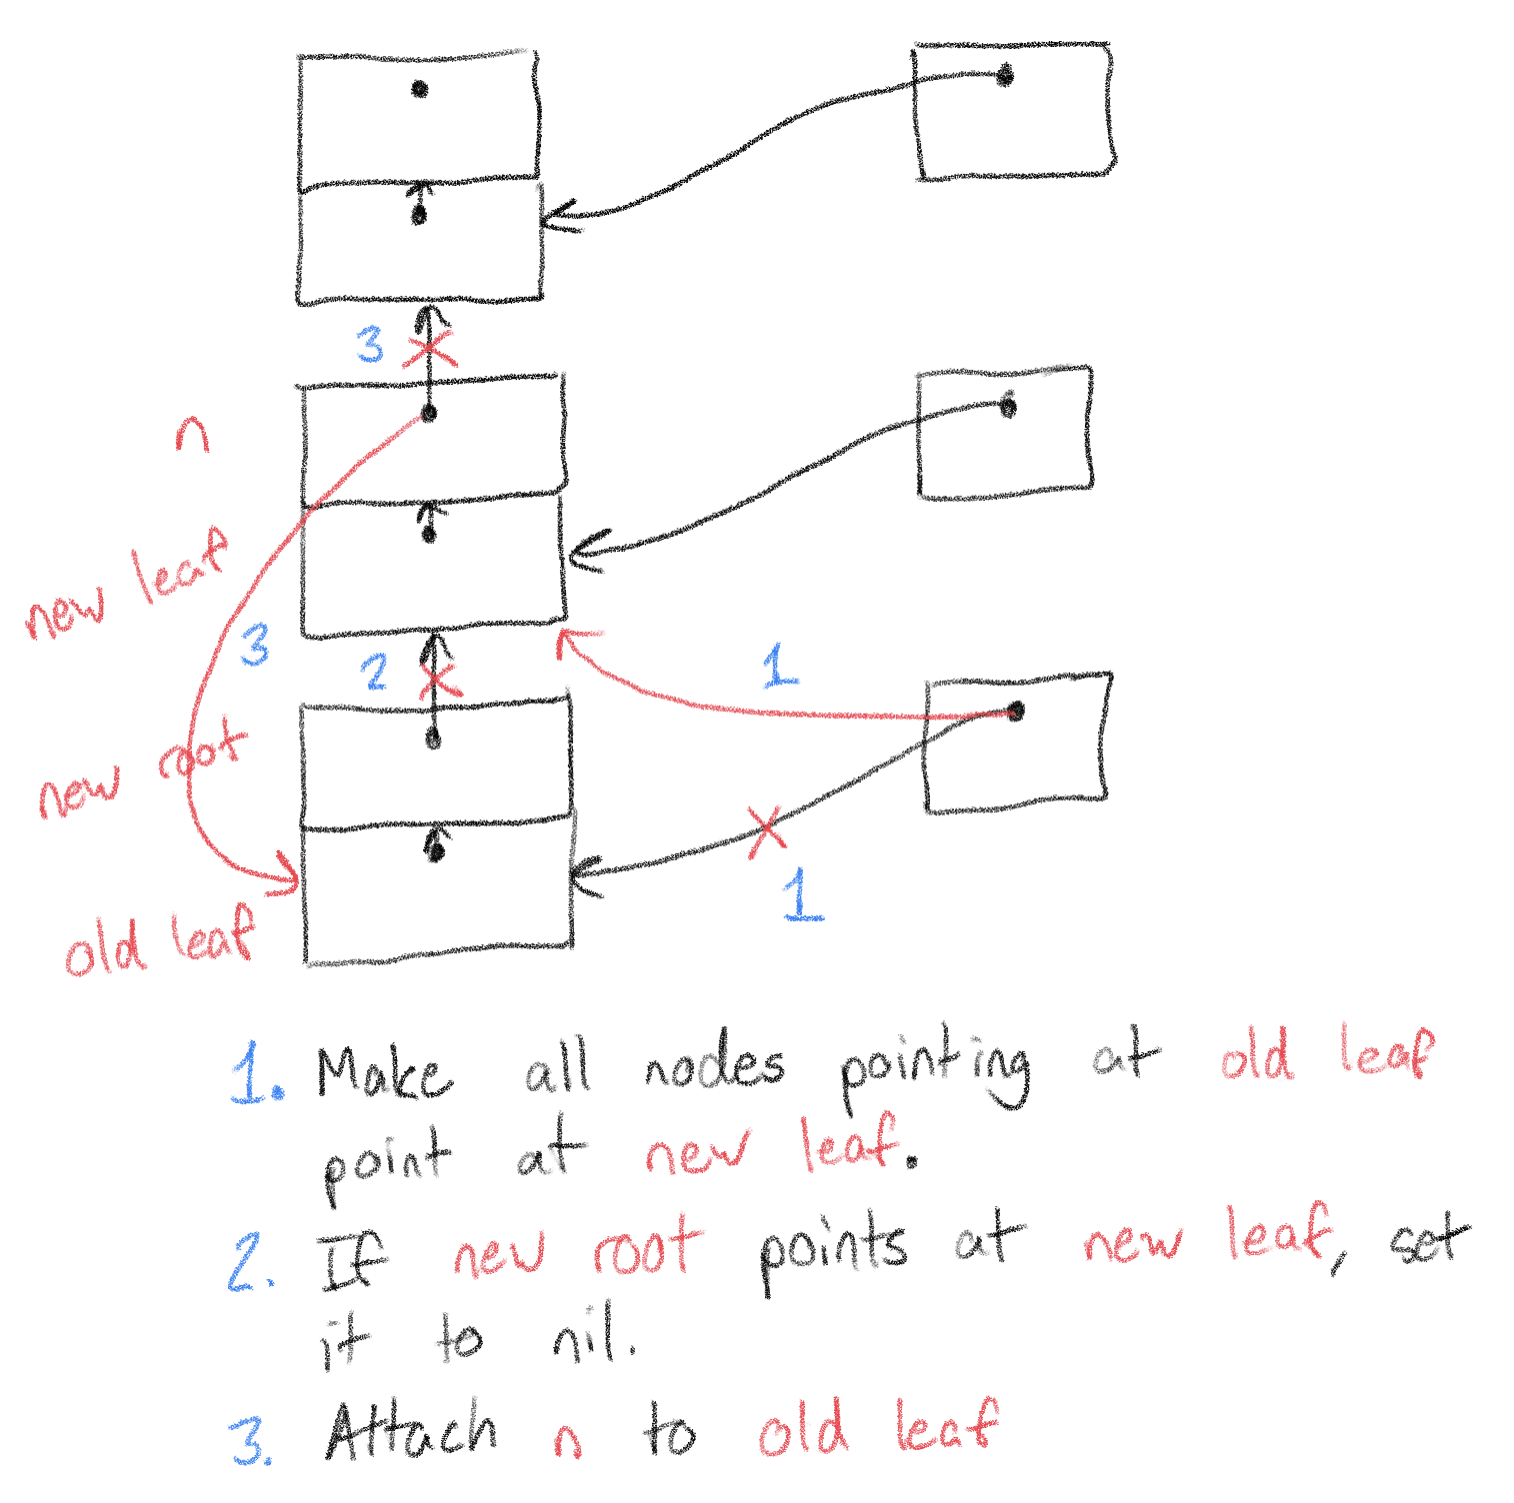 3
n
new leaf
3
2
1
new root
1
old leaf
1. Make all nodes pointing at old leaf
point at new leaf.
2. If new root points at new leaf, set
it to nil.
3. Attach n to old leaf